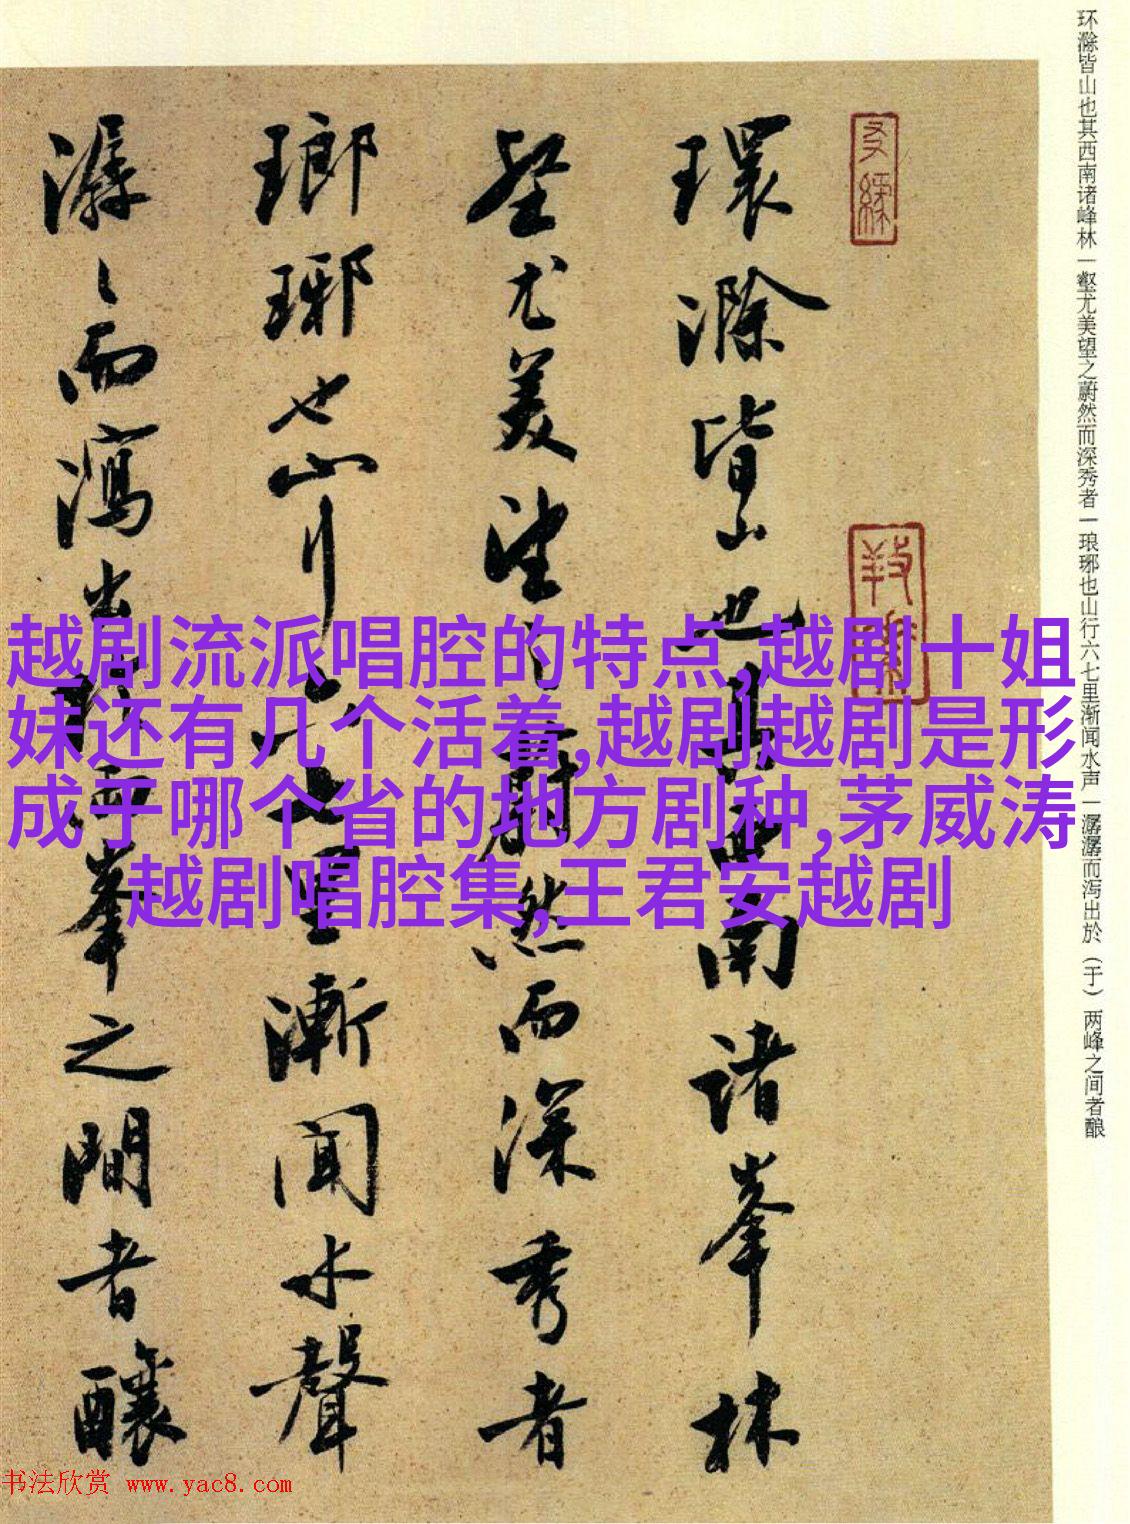 环滁皆山也其西南诸峰林一壑尤美望之蔚然而深秀者一琅琊也山行六七里渐闻水声一潺潺而泻出於（于）两峰之间者酿
環滁皆山也其西南诸峯林
壑尤美望之蔚然而深秀者
瑯琊也山行六七里漸闻水聲
潺〻而瀉出于兩峯之間者釀
越剧流派唱腔的特点,越剧十姐
妹还有几个活着,越剧越剧是形
成于哪个省的地方剧种,茅威涛
越剧唱腔集,王君安越剧
书法欣赏 www.yac8.com